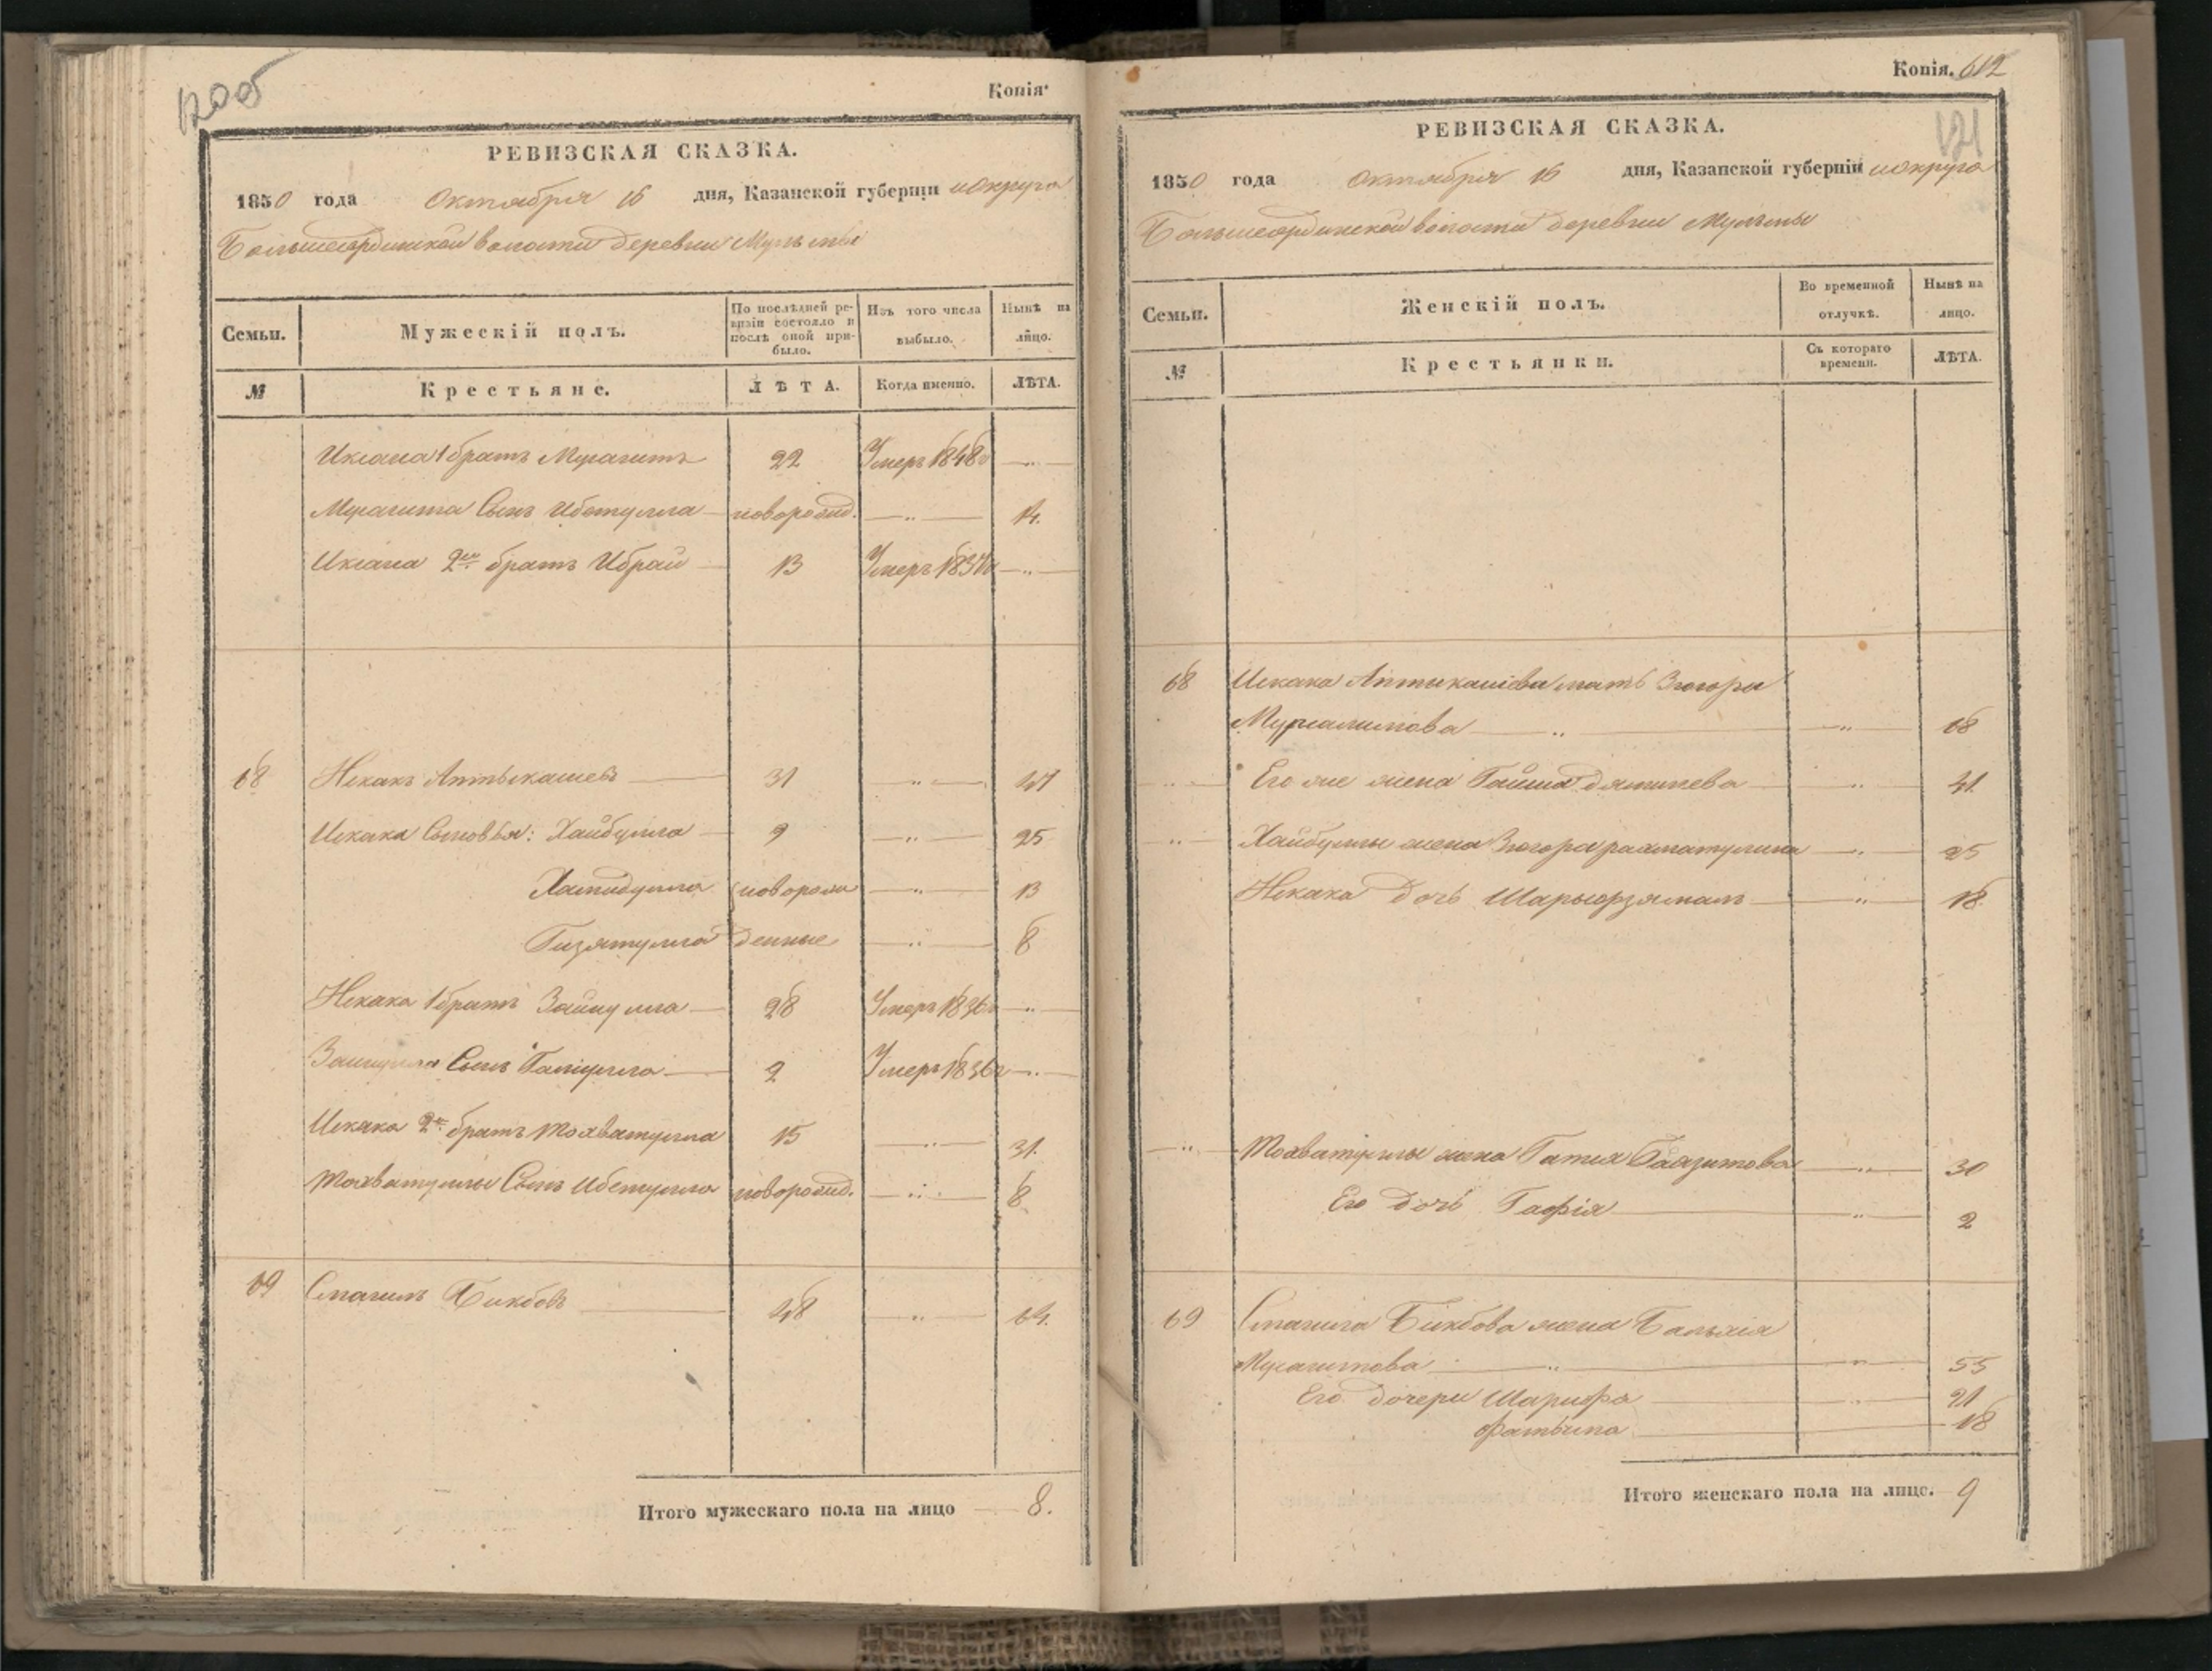 120об
Копія.
РЕВИЗСКАЯ СКАЗКА.
1850 года Октября 16 дня, Казанской губерніи и округа
Большеардинской волости деревни Мульмы
Семьи.
Мужескій полъ.
По послѣдней ре-
визіи состояло и
послѣ оной при-
было.
Изъ того числа
выбыло.
Нынѣ на
лицо.
№
Крестьяне.
ЛѢТА.
Когда именно.
ЛѢТА.
1 братъ 22 Умеръ 1848г — „ —
Сынъ Ибетулла новорожд. — „ — 14.
2й братъ Ибрай 13 Умеръ — „ —
68 Искакъ Аптыкашевъ 31 — „ — 47
Искака Сыновья: Хайбулла 9 — „ — 25
Хамидулла новорож — „ — 13
Гизятулла денные — „ — 8
Искака 1 братъ Зайнулла 28 Умеръ 1836г — „ —
Зайнуллы Сынъ Галиулла 2 Умеръ 1836г — „ —
Искака 2й братъ Мохватулла 15 — „ — 31.
Мохватуллы Сынъ Ибетулла новорожд. — „ — 8
69 Смагилъ Бикбовъ 48 — „ — 64.
Итого мужескаго пола на лицо — 8.
Копія. 612
121
РЕВИЗСКАЯ СКАЗКА.
1850 года Октября 16 дня, Казанской губерніи и округа
Большеардинской волости деревни Мульмы
Семьи.
Женскій полъ.
Во временной
отлучкѣ.
Нынѣ на
лицо.
№
Крестьянки.
Съ котораго
времени.
ЛѢТА.
68 Искака Аптыкашева мать Зюгора
Мурсалимова — „ — — „ — 68
— „ — Его же жена Гайша — „ — 41.
— „ — Хайбуллы жена Зюгора рахматулина — „ — 25
Искака дочь — „ — 18
— „ — Мохватуллы жена — „ — 30
Его дочь Гафія — „ — 2
69 Смагила Бикбова жена
— „ — — „ — 55
Его дочери Шарифа — „ — 21
Фатьима 18
Итого женскаго пола на лицо. 9